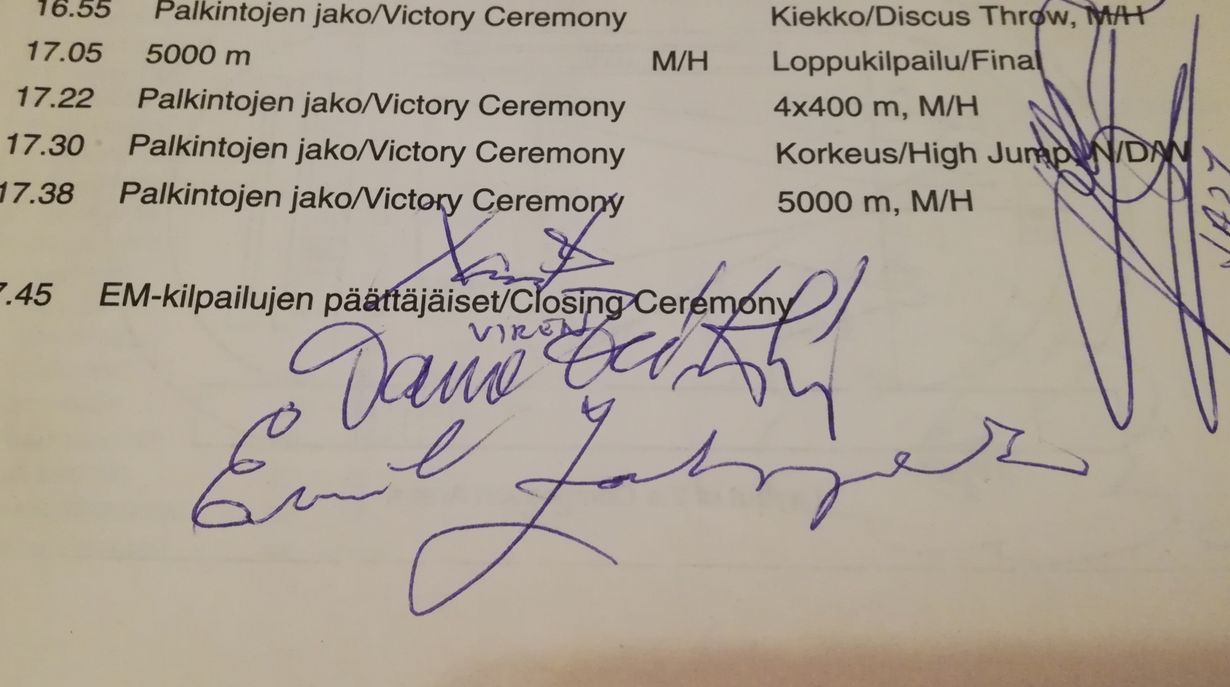 16.55 Palkintojen jako/Victory Ceremony Kiekko/Discus Throw, M/H
17.05 5000 m M/H Loppukilpailu/Final
17.22 Palkintojen jako/Victory Ceremony 4x400 m, M/H
17.30 Palkintojen jako/Victory Ceremony Korkeus/High Jump, N/D/W
17.38 Palkintojen jako/Victory Ceremony 5000 m, M/H
7.45 EM-kilpailujen päättäjäiset/Closing Ceremony
VIREN
Emil